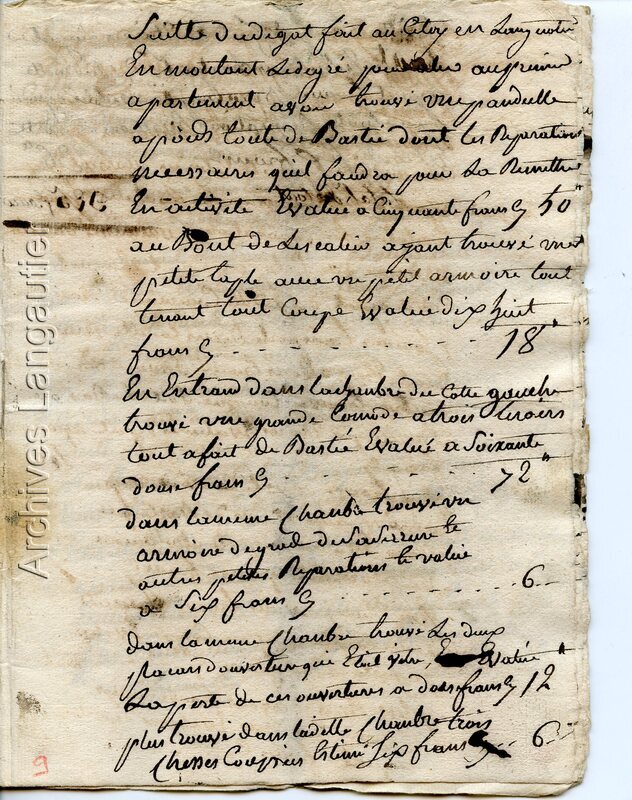 Suitte du degat fait au Citoy en Lang
En montant Le degré pour aler au premier
apartement avoir trouvé une pandulle
a poids toute de Bastie dont les Reparations
necessaires quil faudra pour La Remettre
En activite Evalué a Cinquante frans 50"
au Bout de Lescalier ajant trouvé une
petite table avec un petit armoire tout
tenant tout Coupé Evalué dix huit
frans - - - - - - - 18"
En Entrand dans la chambre du Cotte gauche
trouvé une grande Comode a trois tiroirs
tout a fait de Bastié Evalué a Soixante
douse frans - - - - - - 72"
dans la meme Chambre trouvé un
armoire degradé de sa serrure et
autres petites Reparations Evalué
a Six frans - - - - - - 6
dans la meme Chambre trouvé Les deux
placars douverture qui Etoit vitré, Evalué
La perte de ces ouvertures a douse frans 12"
plus trouvé dans ladette Chambre trois
Chesses Coupées Estimé Six frans 6
9
Archives Langautier